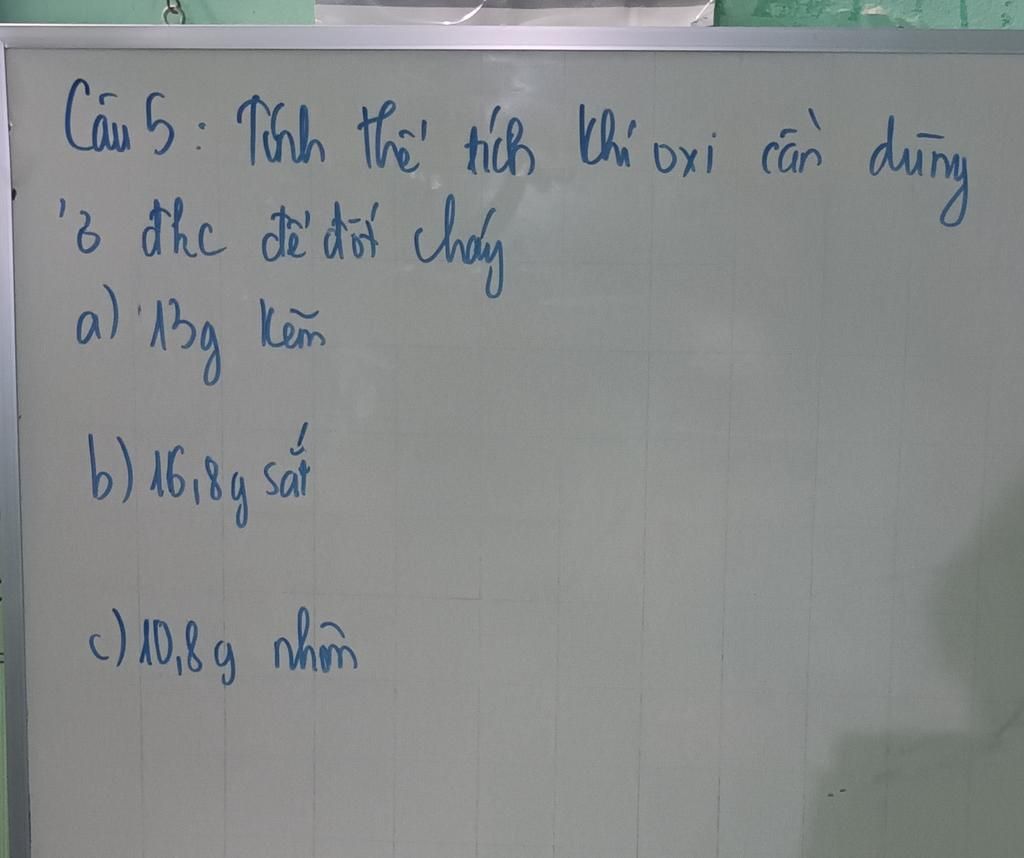 Câu 5: Tính thể tích khí oxi cần dùng
ở đkc để đốt cháy
a) 13g kẽm
b) 16,8g sắt
c) 10,8g nhôm